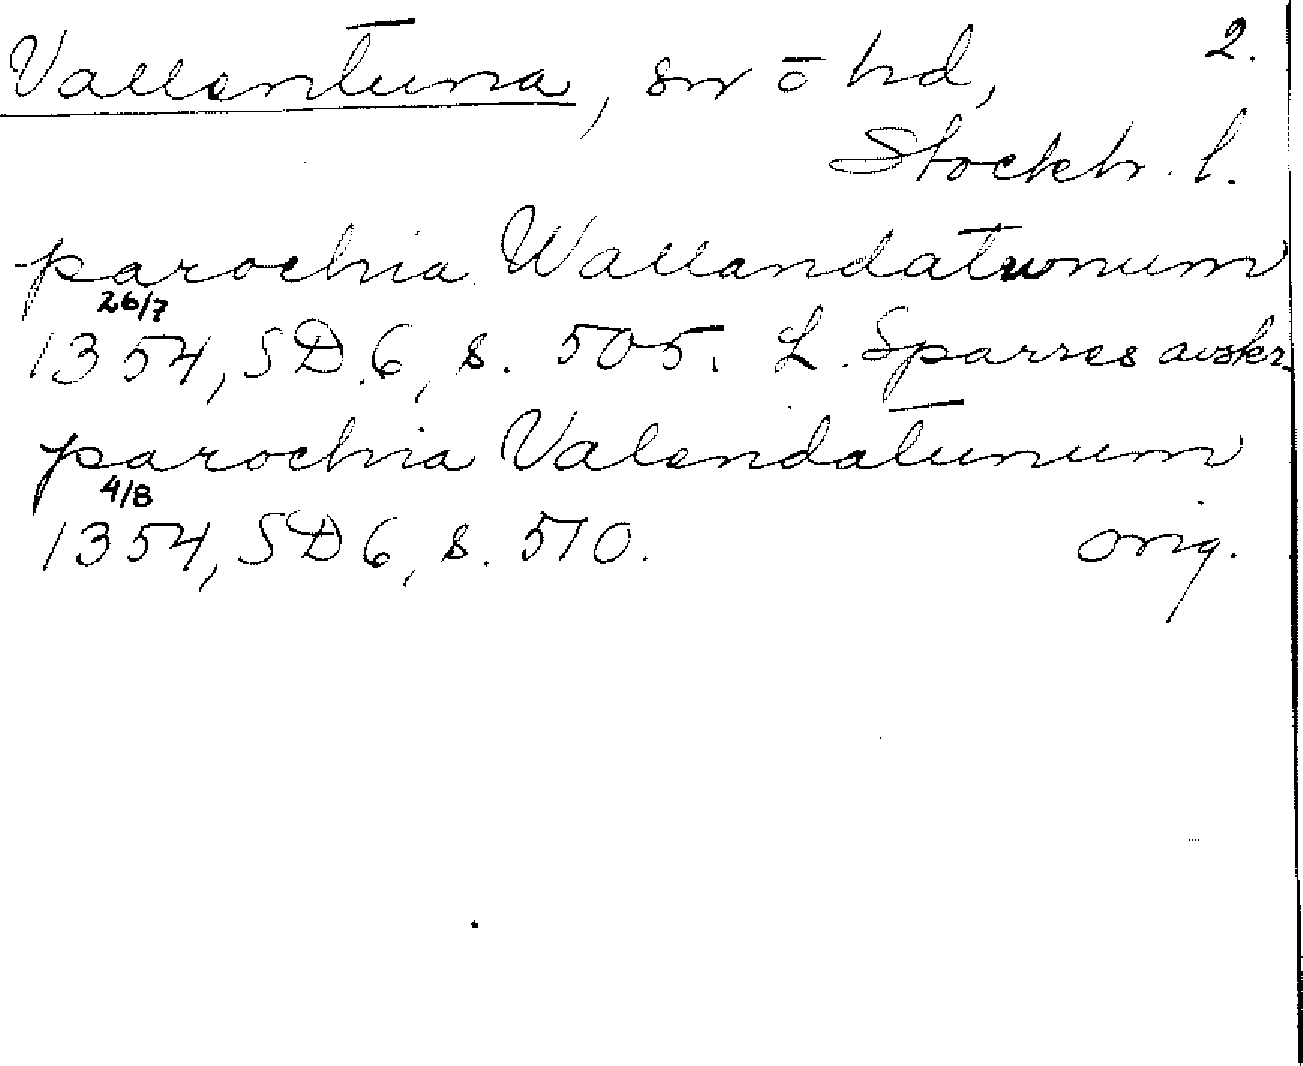 Vallentuna, sn ō hd, 2.
Stockh. l.
parochia Wallandatunum
26/7
1354, SD 6, s. 505. L. Sparres avskr.
parochia Valendatunum
4/8
1354, SD 6, s. 510. orig.